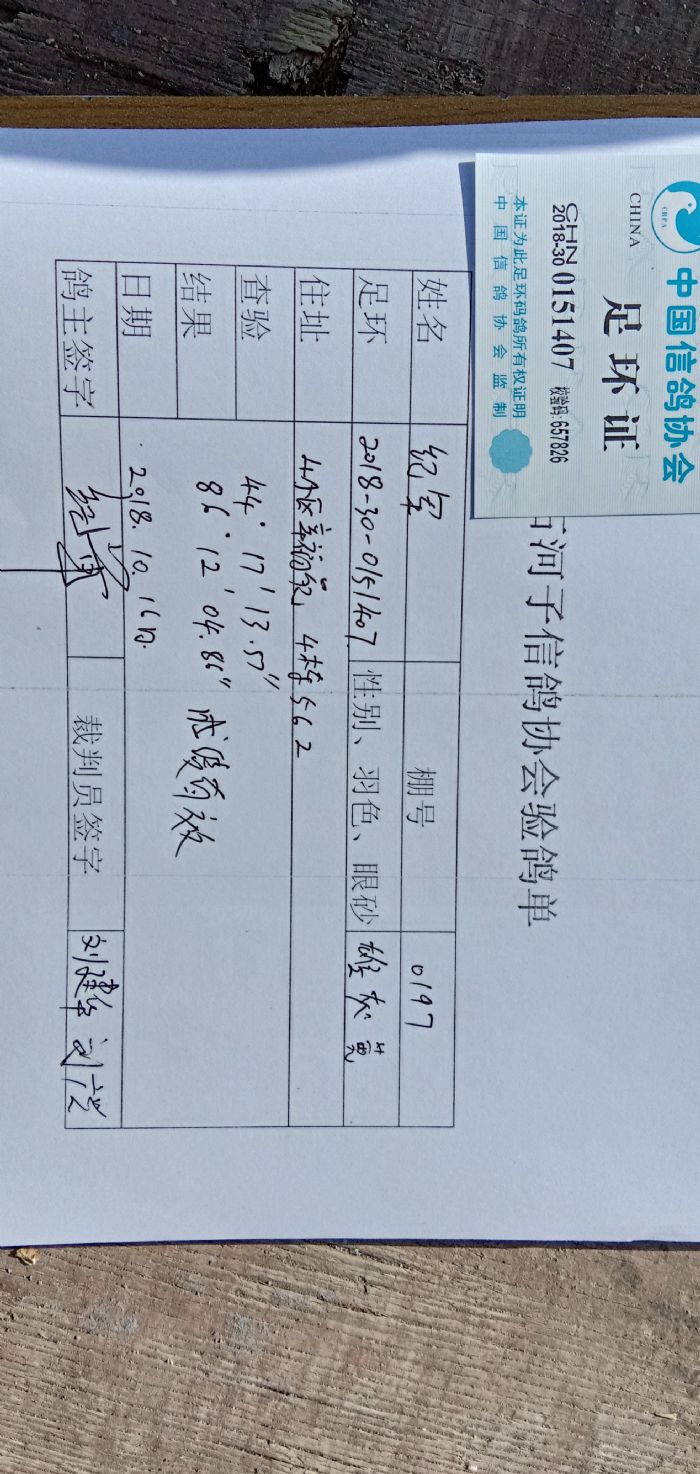 中国信鸽协会
CHINA
足环证
CHN
2018-30 0151407 校验码:657826
本证为此足环码鸽所有权证明
中国信鸽协会监制
河子信鸽协会验鸽单
姓名 纪军 棚号 0197
足环 2018-30-0151407 性别、羽色、眼砂 雄灰黄
住址 4小区幸福苑, 4栋562
查验结果 44°17′13.57″
86°12′04.86″ 成绩有效
日期 2018.10.16日.
鸽主签字 纪军 裁判员签字 刘建华